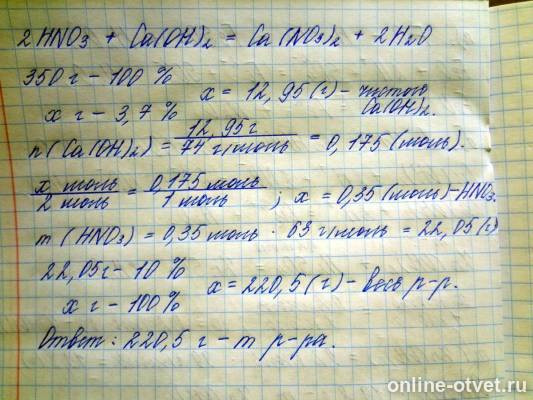 2HNO₃ + Ca(OH)₂ = Ca(NO₃)₂ + 2H₂O
350 г - 100 %
x г - 3,7 %
x = 12,95 (г) - чистого Ca(OH)₂.
n(Ca(OH)₂) = 12,95 г / 74 г/моль = 0,175 (моль).
x моль / 2 моль = 0,175 моль / 1 моль ; x = 0,35 (моль) - HNO₃.
m (HNO₃) = 0,35 моль · 63 г/моль = 22,05 (г)
22,05 г - 10 %
x г - 100 %
x = 220,5 (г) - весь р-р.
Ответ: 220,5 г - m р-ра.
online-otvet.ru